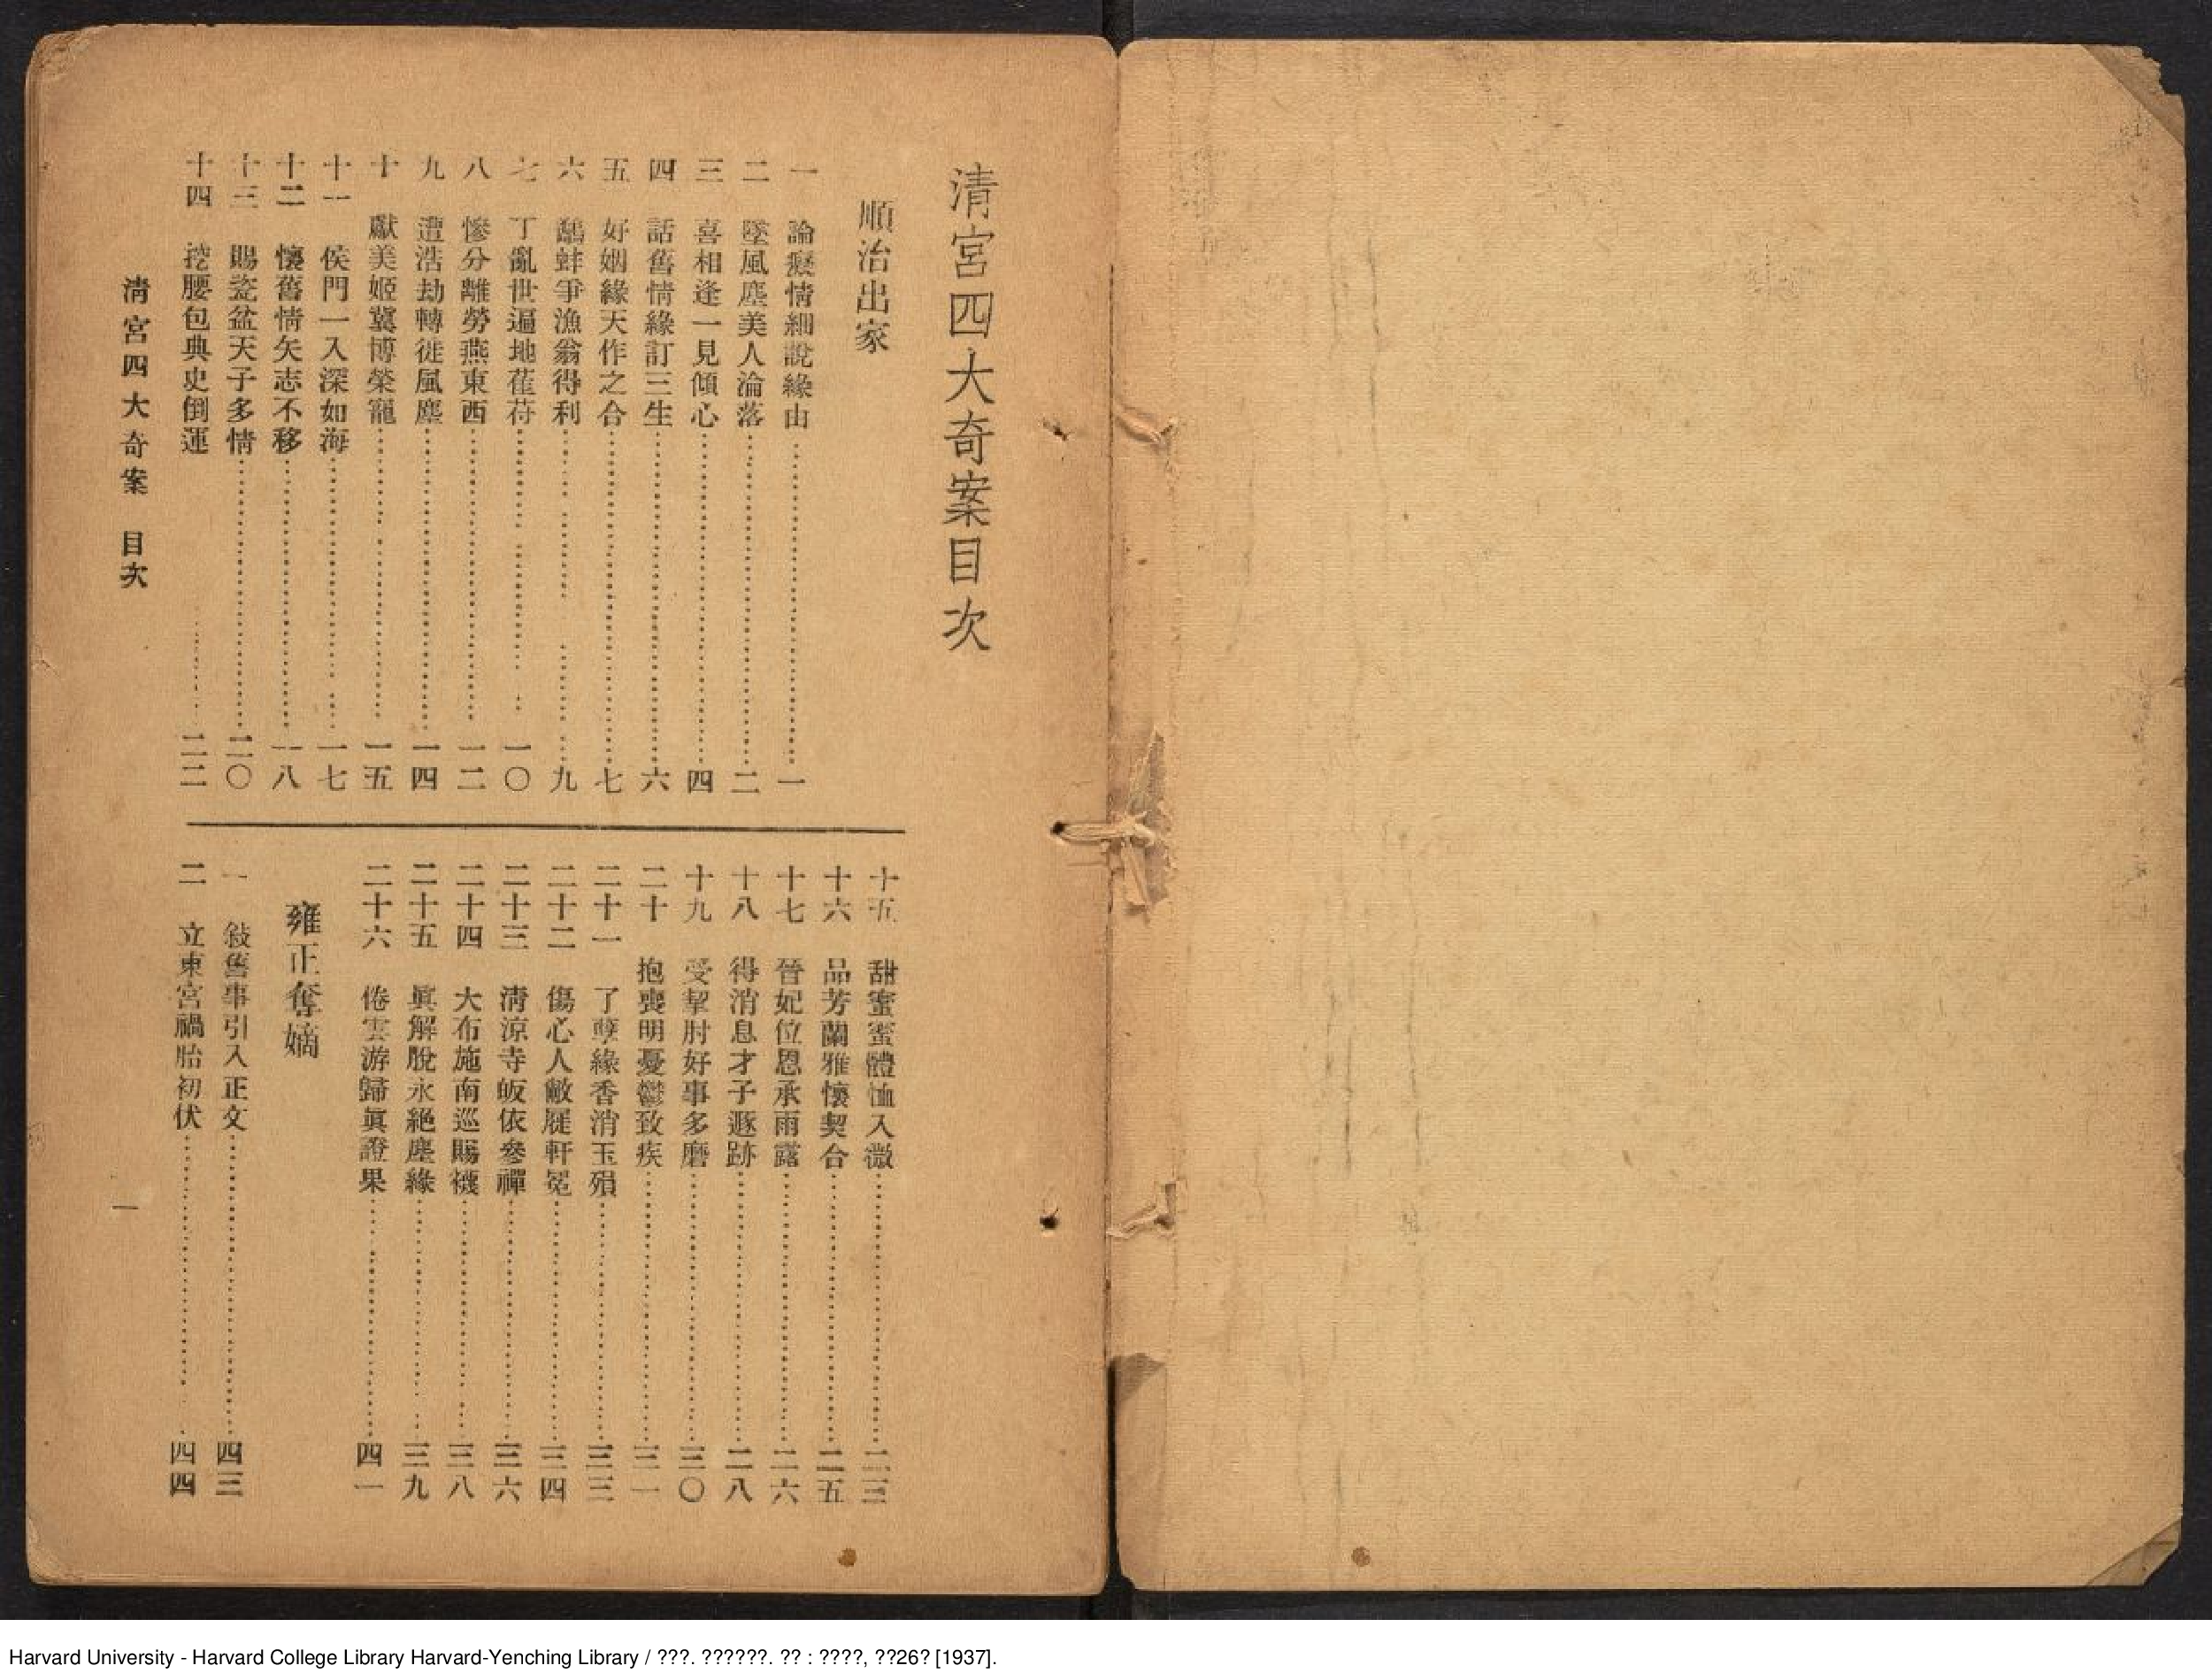 清宮四大奇案目次
順治出家
一 論癡情細說緣由 一
二 墜風塵美人淪落 二
三 喜相逢一見傾心 四
四 話舊情緣訂三生 六
五 好姻緣天作之合 七
六 鷸蚌爭漁翁得利 九
七 丁亂世遍地萑苻 一〇
八 慘分離勞燕東西 一二
九 遭浩劫轉徙風塵 一四
十 獻美姬冀博榮寵 一五
十一 侯門一入深如海 一七
十二 懷舊情矢志不移 一八
十三 賜瓷盆天子多情 二〇
十四 挖腰包典史倒運 二二
十五 甜蜜蜜體恤入微 二三
十六 品芳蘭雅懷契合 二五
十七 晉妃位恩承雨露 二六
十八 得消息才子遯跡 二八
十九 受掣肘好事多磨 三〇
二十 抱喪明憂鬱致疾 三一
二十一 了孽緣香消玉殞 三三
二十二 傷心人敝屣軒冕 三四
二十三 清涼寺皈依參禪 三六
二十四 大布施南巡賜襪 三八
二十五 眞解脫永絕塵緣 三九
二十六 倦雲游歸眞證果 四一
雍正奪嫡
一 敍舊事引入正文 四三
二 立東宮禍胎初伏 四四
清宮四大奇案 目次
一
Harvard University - Harvard College Library Harvard-Yenching Library / ???. ??????. ?? : ????, ??26? [1937].